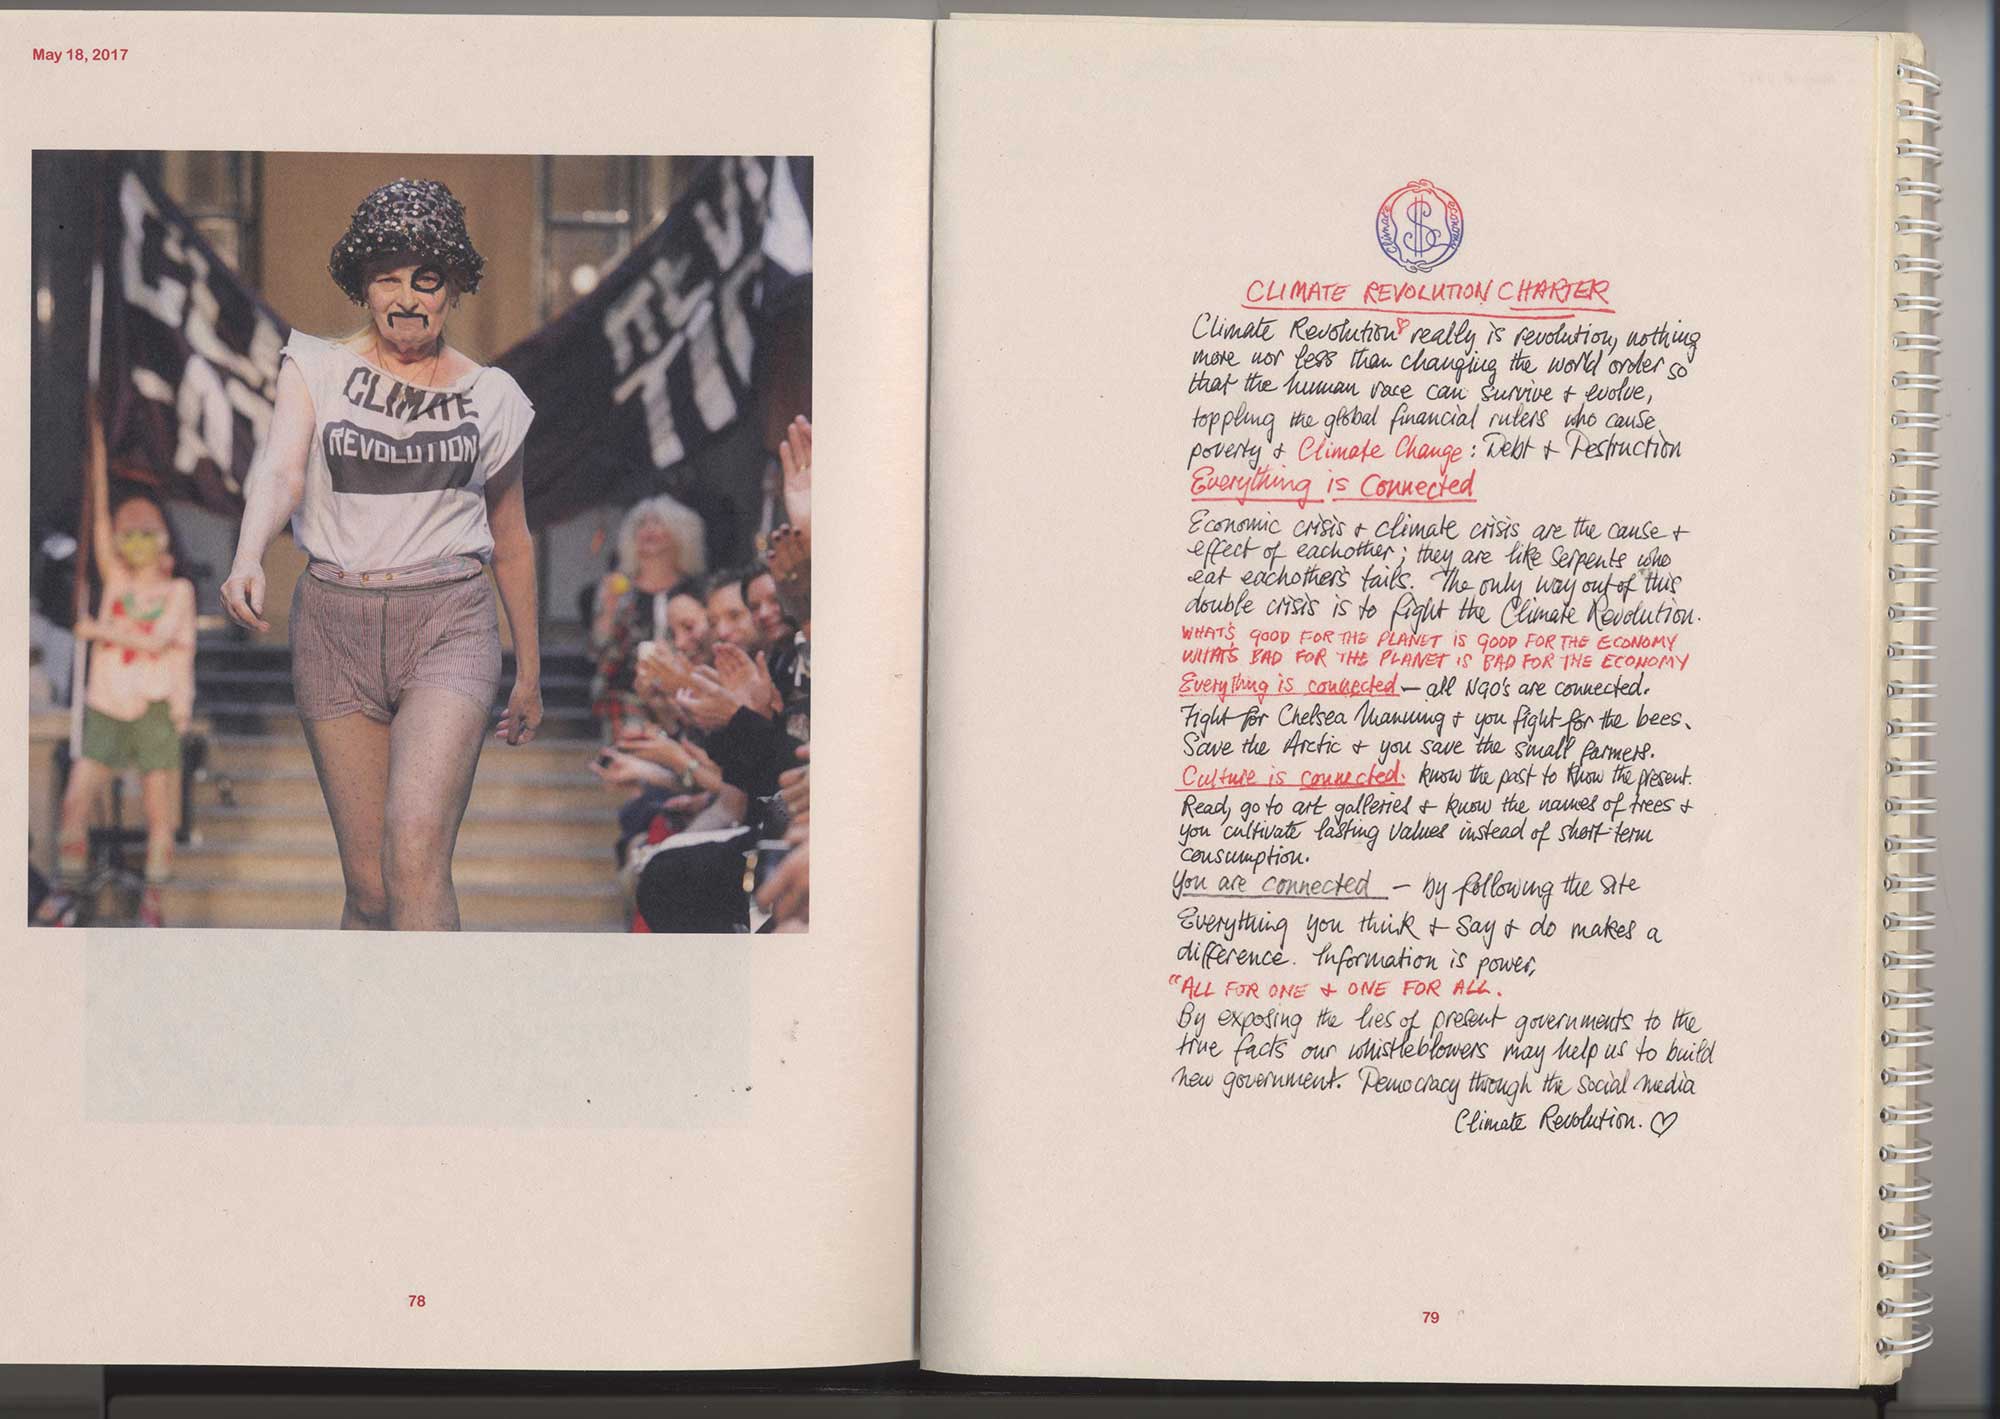 May 18, 2017
CLIMATE
REVOLUTION
78
Climate
CLIMATE REVOLUTION CHARTER
Climate Revolution really is revolution, nothing
more nor less than changing the world order so
that the human race can survive + evolve,
toppling the global financial rulers who cause
poverty + Climate Change: Debt + Destruction
Everything is Connected
Economic crisis + climate crisis are the cause +
effect of eachother; they are like serpents who
eat eachother's tails. The only way out of this
double crisis is to fight the Climate Revolution.
WHAT'S GOOD FOR THE PLANET IS GOOD FOR THE ECONOMY
WHAT'S BAD FOR THE PLANET IS BAD FOR THE ECONOMY
Everything is connected — all NGO's are connected.
Fight for Chelsea Manning + you fight for the bees.
Save the Arctic + you save the small farmers.
Culture is connected. Know the past to know the present.
Read, go to art galleries + know the names of trees +
you cultivate lasting values instead of short-term
consumption.
You are connected — by following the site
Everything you think + say + do makes a
difference. Information is power,
"ALL FOR ONE + ONE FOR ALL.
By exposing the lies of present governments to the
true facts our whistleblowers may help us to build
new government. Democracy through the social media
Climate Revolution.
79